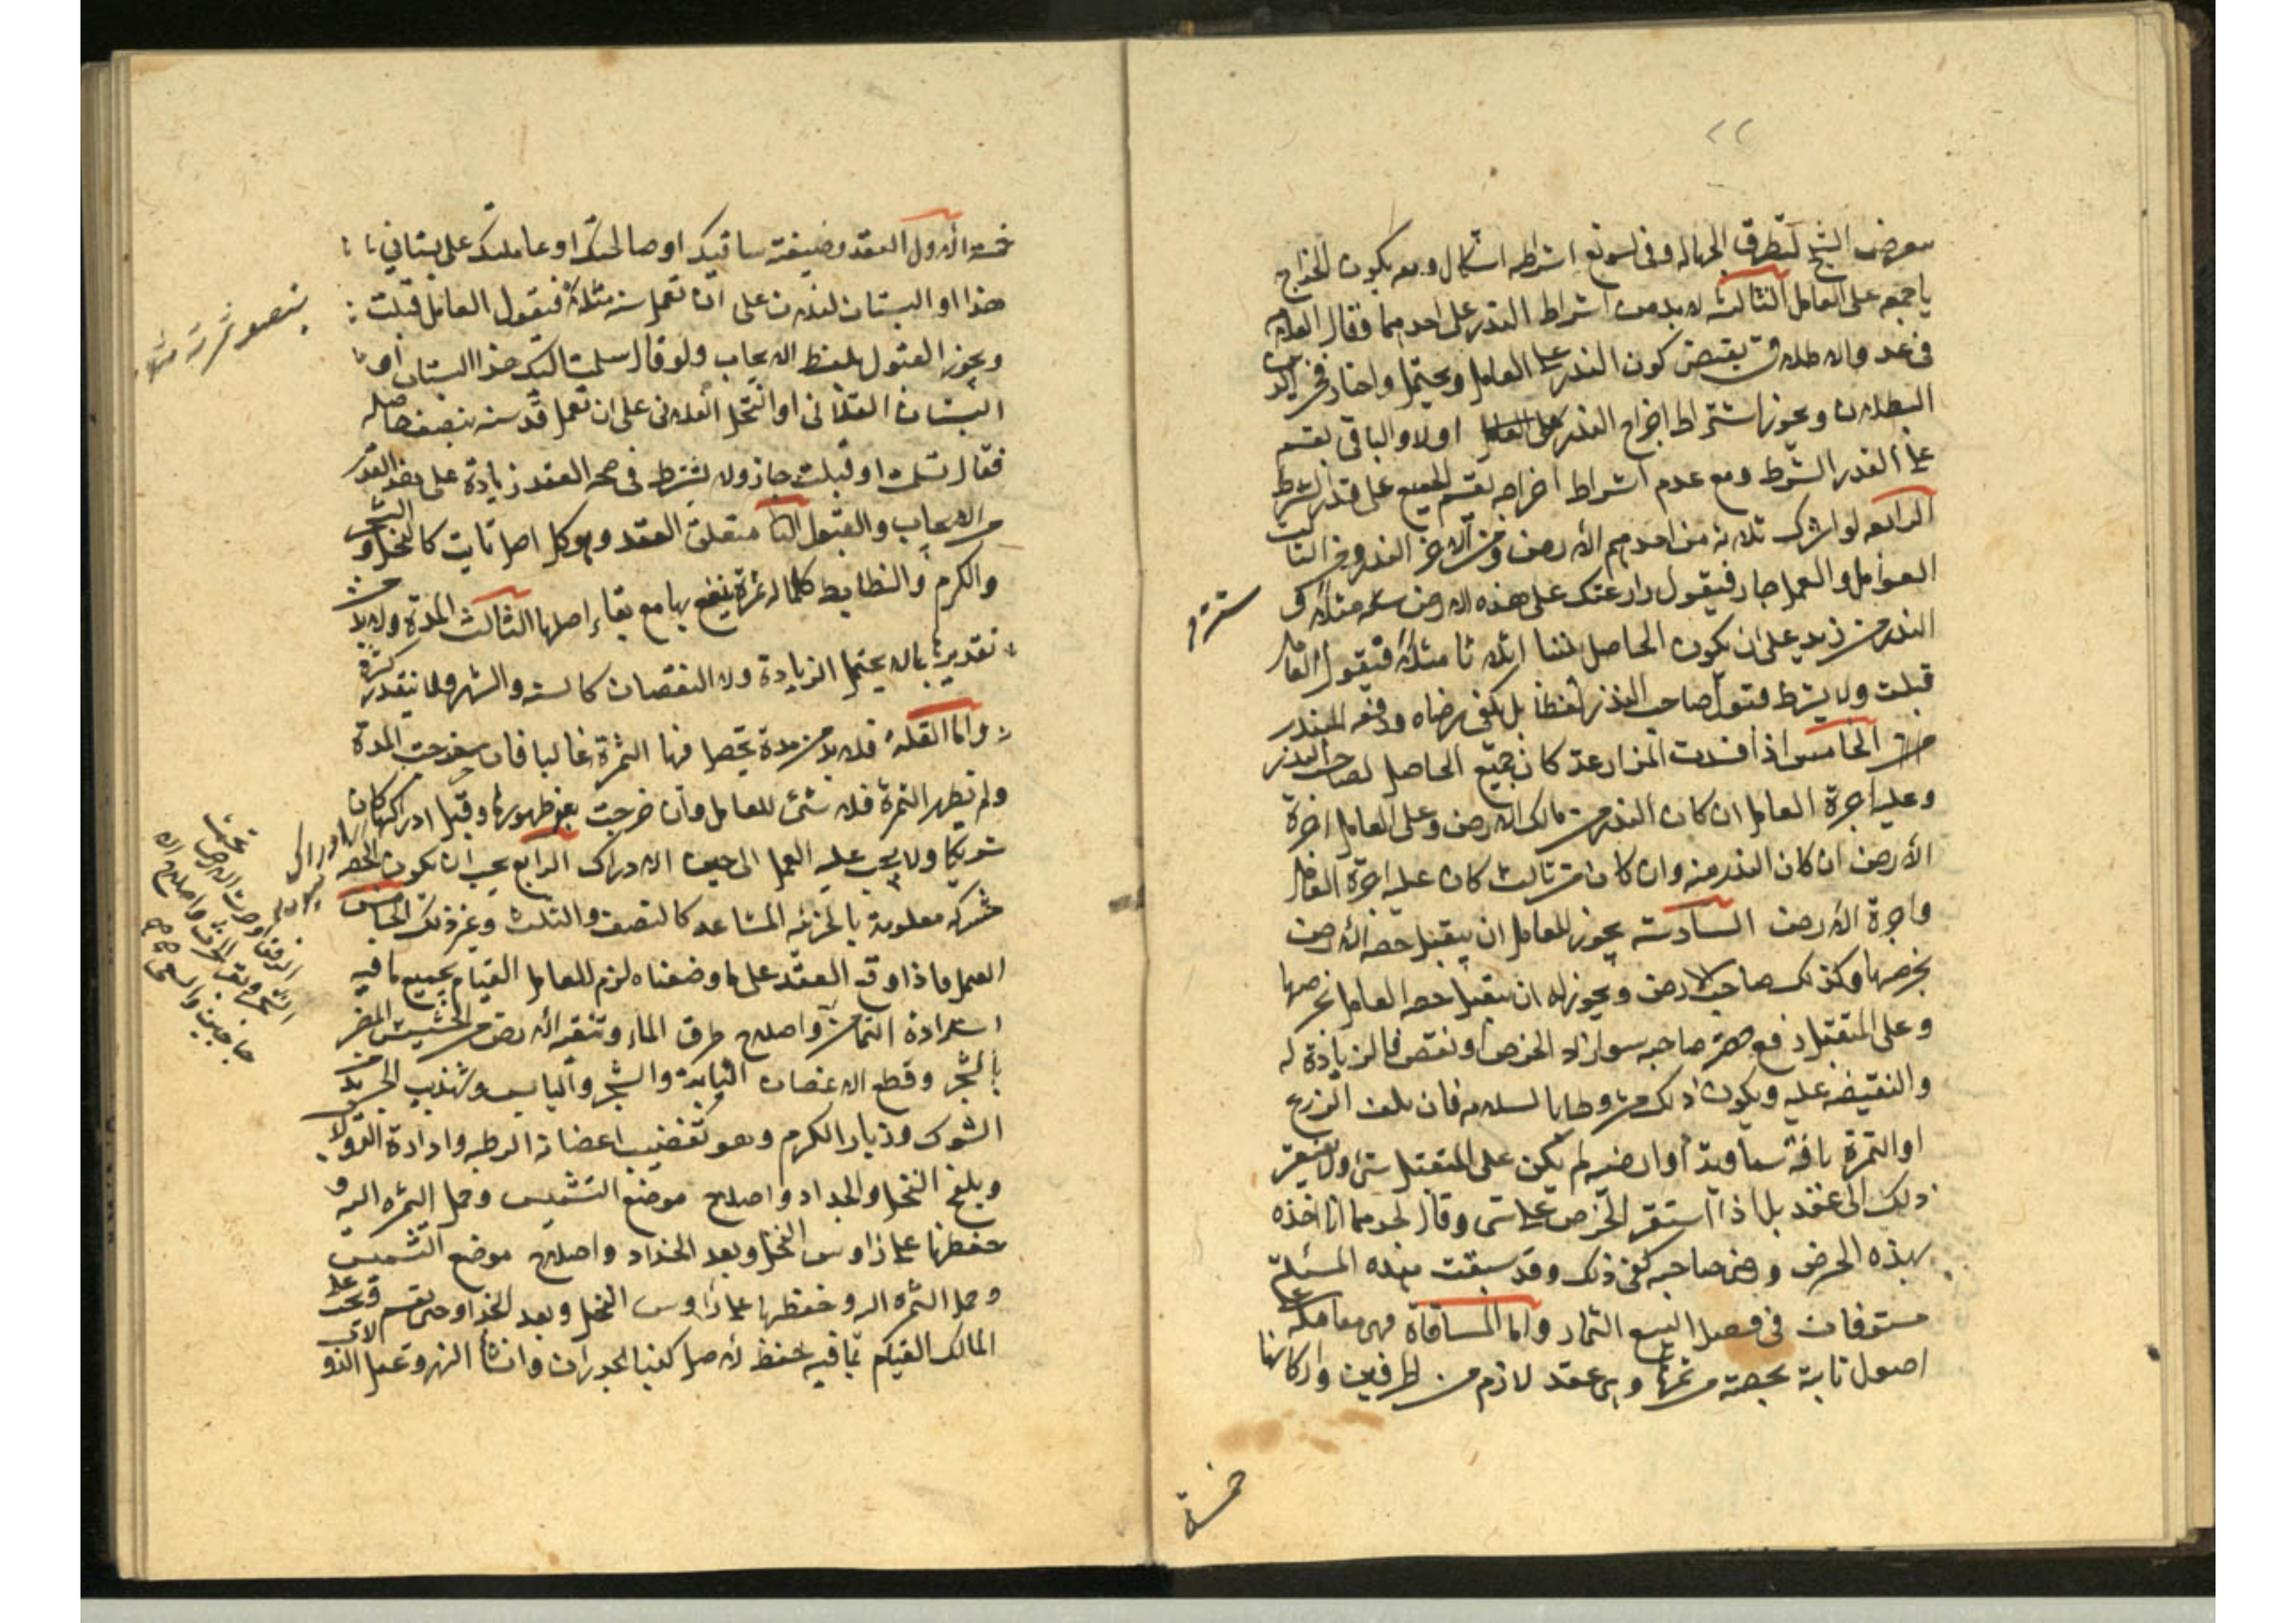 ٢٢
يعرض الشيخ لتطرق الجهاله وفى تسويغ اشتراطه اشكال ومعه يكون الخراج
باجمعه على العامل الثالثه لا بد من اشتراط البذر على احدهما فقال العلامه
فى عد والاطلاق يقتضى كون البذر على العامل ويحتمل واختار فخر الدين
البطلان ويجوز اشتراط اخراج البذر اولا والباقى يقسم
على القدر الشرط ومع عدم اشتراط اخراجه يقسم الجميع على قدر الشرط
الرابعه لو اشترك ثلاثه من احدهم الارض ومن الاخر البذر ومن الثالث
العوامل والعمل جاز فيقول زارعتك على هذه الارض سنه مثلا و
البذر من زيد على ان يكون الحاصل بيننا اثلاثا مثلا فيقول العامل
قبلت ولا يشترط قبول صاحب البذر لفظا بل يكفى رضاه ودفعه البذر
الخامس اذا فسدت المزارعة كان جميع الحاصل لصاحب البذر
وعليه اجرة العامل ان كان البذر من مالك الارض وعلى العامل اجرة
الارض ان كان البذر منه وان كان من ثالث كان عليه اجرة العامل
واجرة الارض السادسة يجوز للعامل ان يتقبل حصه الارض
بخرصها وكذلك صاحب الارض ويجوز له ان يتقبل حصه العامل بخرصها
وعلى المتقبل دفع حصة صاحبه سوا زاد الخرص او نقص فالزيادة له
والنقيصه عليه ويكون ذلك مشروطا بالسلامه فان تلف الزرع
او الثمرة بافة سماوية او ارضيه لم يكن على المتقبل شئ ولا يفتقر
ذلك الى عقد بل اذا استقر الخرص على شى وقال احدهما انا اخذه
بهذه الخرص ورضى صاحبه كفى ذلك وقد سبقت هذه المسئلة
مستوفات فى فصل البيع الثمار واما المساقاة فهى معامله على
اصول ثابتة بحصة من ثمرتها وهى عقد لازم من الطرفين واركانها
خمسة
خمسه الاول العقد وصيغته ساقيتك او صالحتك او عاملتك على بستانى
هذا او البستان لفلان على ان تعمل سنه مثلا فيقول العامل قبلت
بنصف ثمرته مثلا
ويجوز القبول بلفظ الايجاب ولو قال سلمت اليك هذا البستان او
البستان الفلانى او النخل الفلانى على ان تعمل فيه سنه بنصف حاصله
فقال تسلمت او قبلت جاز ولا يشترط فى صحه العقد زيادة على هذا القدر
من الايجاب والقبول الثانى متعلق العقد وهو كل اصل ثابت كالنخل والشجر
والكرم والضابط كلما له ثمرة ينتفع بها مع بقاء اصلها الثالث المدة ولا بد من
تقديرها بما لا يحتمل الزيادة ولا النقصان كالسنه والشهر ولا يتقدر كثرة
واما القلة فلا بد من مدة يحصل فيها الثمرة غالبا فان خرجت المدة
ولم تظهر الثمرة فلا شئ للعامل وان خرجت بعد ظهورها وقبل ادراكها كان
شريكا ولا يجب عليه العمل الى حين الادراك الرابع يجب ان تكون الحصه
مشتركه معلومة بالجزئيه المشاعه كالنصف والثلث وغير ذلك الخامس
العمل فاذا وقع العقد على ما وضعناه لزم للعامل القيام بجميع ما فيه
استزادة الثمار واصلاح طرق الماء وتنقيه الارض من الحشيش المضر
بالشجر وقطع الاغصان اليابسة والشجر واليابس وتهذيب الجريد من
الشوك وزبار الكرم وهو تقضيب اغصانه الرطبه وادارة الدولاب
وتلقيح النخل والجداد واصلاح موضع التشميس وحمل الثمره اليه و
حفظها على رؤس النخل وبعد الجداد واصلاح موضع التشميس
وحمل الثمره اليه وحفظها على رؤس النخل وبعد الجداد حتى يقسم ويجب على
المالك القيام بما فيه حفظ الاصل كبناء الجدران وانشأ النهر وعمل الدولاب